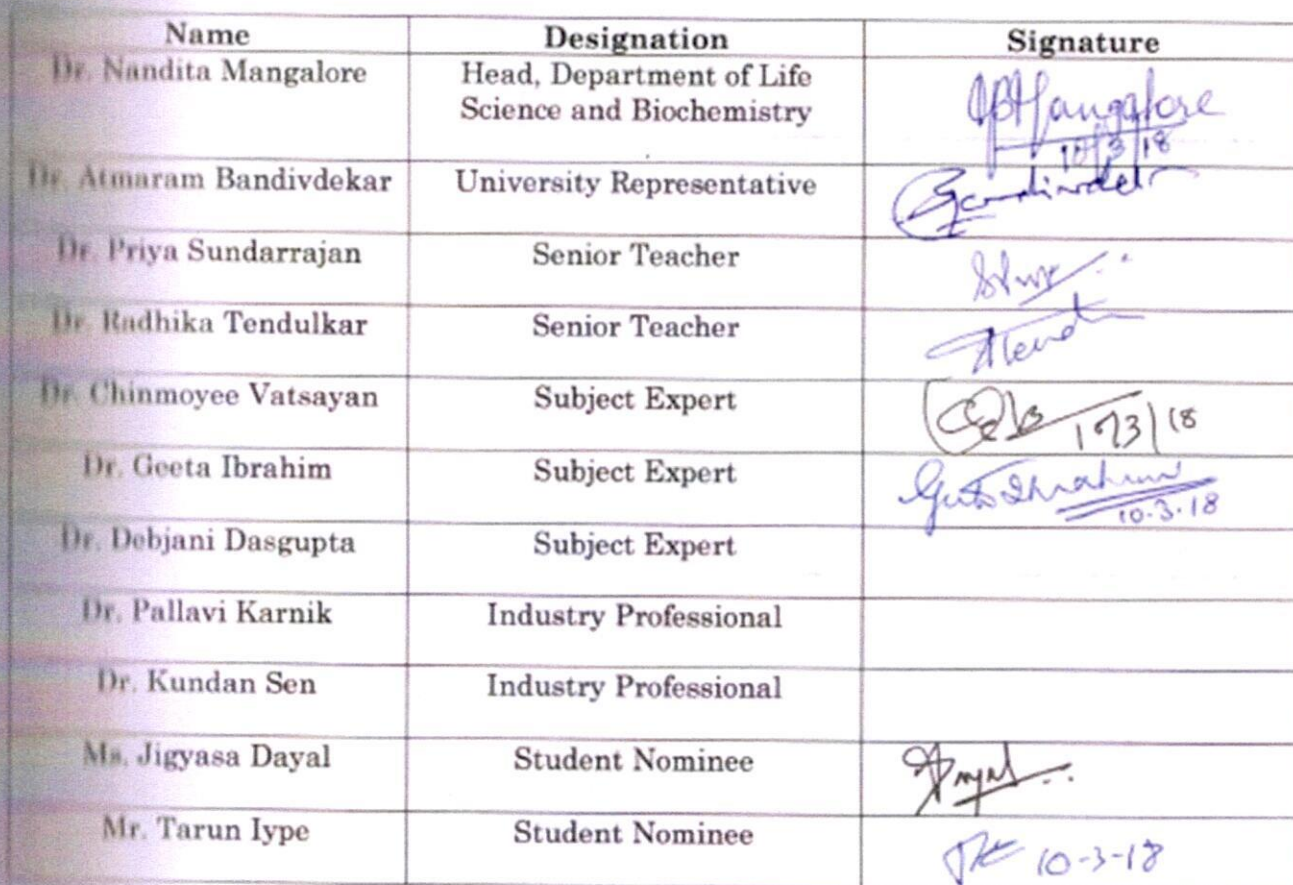 Name Designation Signature
Dr. Nandita Mangalore Head, Department of Life
Science and Biochemistry
Mangalore
10/3/18
Dr. Atmaram Bandivdekar University Representative
Dr. Priya Sundarrajan Senior Teacher
Dr. Radhika Tendulkar Senior Teacher
Dr. Chinmoyee Vatsayan Subject Expert
Dr. Geeta Ibrahim Subject Expert
Geeta Ibrahim
10.3.18
Dr. Debjani Dasgupta Subject Expert
Dr. Pallavi Karnik Industry Professional
Dr. Kundan Sen Industry Professional
Ms. Jigyasa Dayal Student Nominee
Mr. Tarun Iype Student Nominee 10-3-18